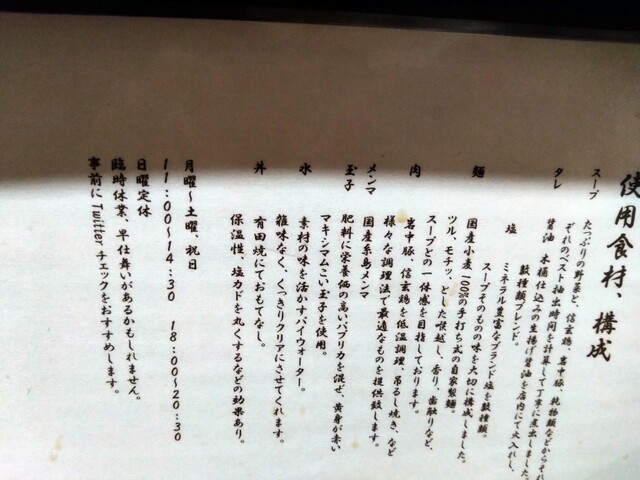 使用食材、構成
スープ
たっぷりの野菜と、信玄鶏、岩中豚、乾物類などからそれ
ぞれのベスト抽出時間を計算して丁寧に煮出しました
タレ
醤油 木桶仕込みの生揚げ醤油を店内にて火入れし、
数種類ブレンド。
塩 ミネラル豊富なブランド塩を数種類。
スープそのものの味を大切に構成しました。
麺
国産小麦100%の手打ち式の自家製麺。
ツル、モチッ、とした喉越し、香り、歯触りなど、
スープとの一体感を目指しております。
肉
岩中豚、信玄鶏を低温調理、吊るし焼き、など
様々な調理法で最適なものを提供致します。
メンマ
国産糸島メンマ
玉子
肥料に栄養価の高いパプリカを混ぜ、黄身が赤い
マキシマムこい玉子を使用。
水
素材の味を活かすパイウォーター。
雑味なく、くっきりクリアにさせてくれます。
丼
有田焼にておもてなし。
保温性、塩カドを丸くするなどの効果あり。
月曜〜土曜、祝日
11:00〜14:30 18:00〜20:30
日曜定休
臨時休業、早仕舞いがあるかもしれません。
事前にTwitterチェックをおすすめします。